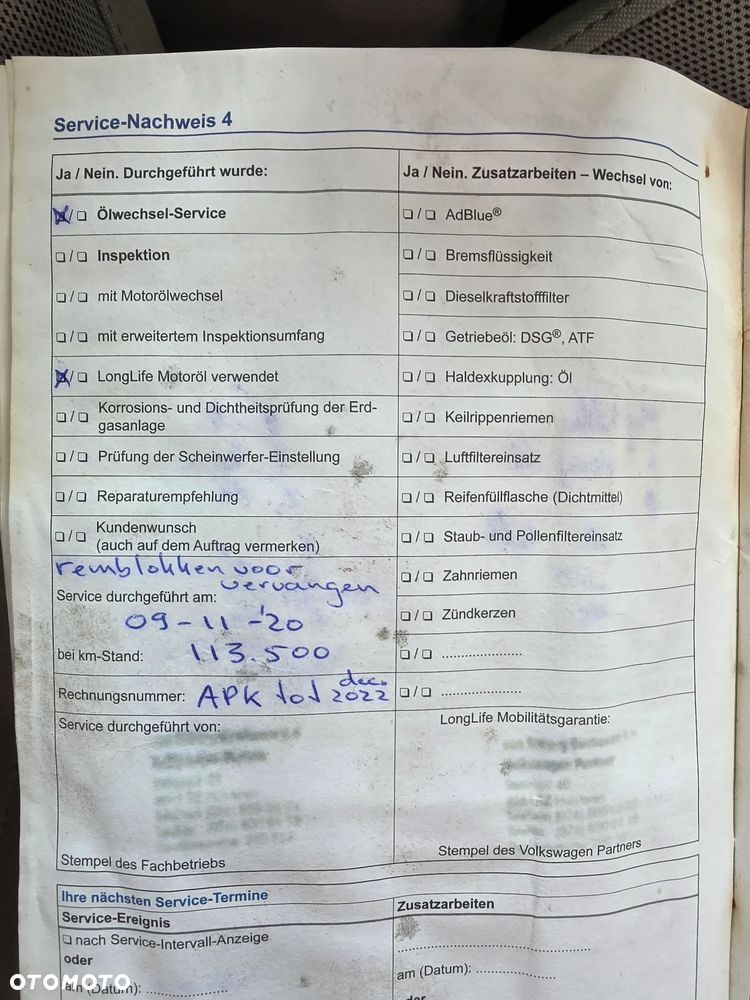 Service-Nachweis 4
Ja / Nein. Durchgeführt wurde:
☒/☐ Ölwechsel-Service
☐/☐ Inspektion
☐/☐ mit Motorölwechsel
☐/☐ mit erweitertem Inspektionsumfang
☒/☐ LongLife Motoröl verwendet
☐/☐ Korrosions- und Dichtheitsprüfung der Erd-
gasanlage
☐/☐ Prüfung der Scheinwerfer-Einstellung
☐/☐ Reparaturempfehlung
☐/☐ Kundenwunsch
(auch auf dem Auftrag vermerken)
remblokken voor
vervangen
Service durchgeführt am:
09-11-'20
bei km-Stand: 113.500
Rechnungsnummer: APK tot dec. 2022
Service durchgeführt von:
Stempel des Fachbetriebs
Ja / Nein. Zusatzarbeiten – Wechsel von:
☐/☐ AdBlue®
☐/☐ Bremsflüssigkeit
☐/☐ Dieselkraftstofffilter
☐/☐ Getriebeöl: DSG®, ATF
☐/☐ Haldexkupplung: Öl
☐/☐ Keilrippenriemen
☐/☐ Luftfiltereinsatz
☐/☐ Reifenfüllflasche (Dichtmittel)
☐/☐ Staub- und Pollenfiltereinsatz
☐/☐ Zahnriemen
☐/☐ Zündkerzen
☐/☐ ....................
☐/☐ ....................
LongLife Mobilitätsgarantie:
Stempel des Volkswagen Partners
Ihre nächsten Service-Termine
Service-Ereignis
☐ nach Service-Intervall-Anzeige
oder
am (Datum): ....................
Zusatzarbeiten
..................................................
am (Datum): ....................
oder
OTOMOTO